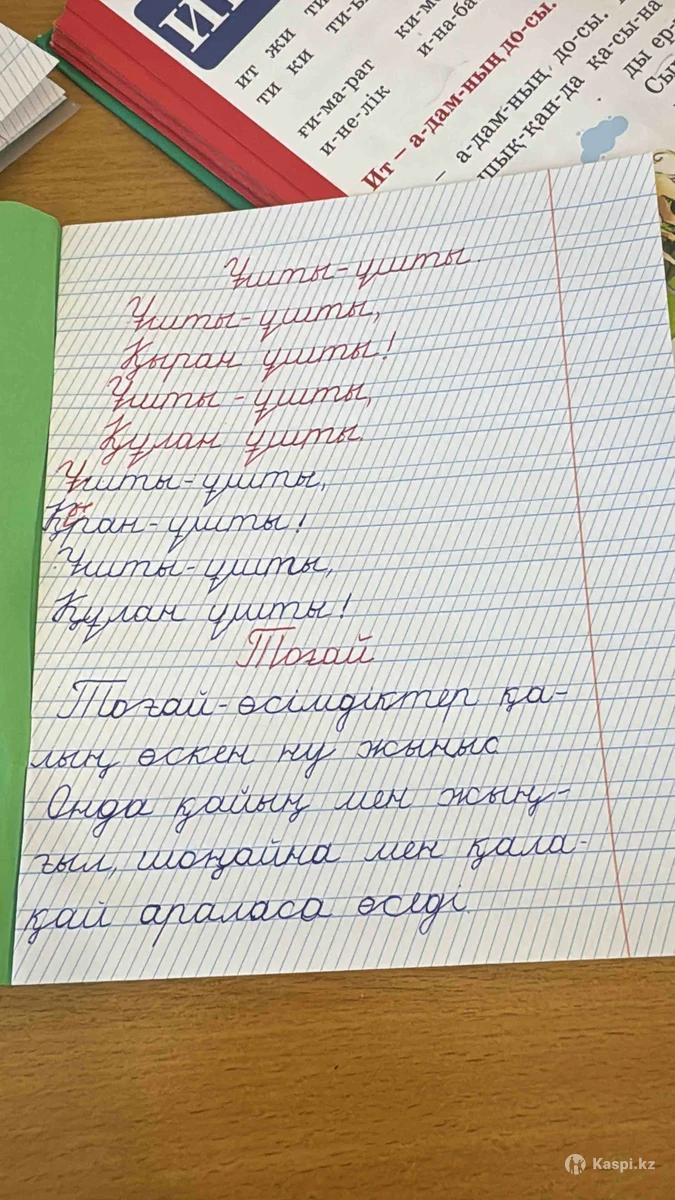 ит жи ти
ти ки ти-
ғи-ма-рат ки-м
и-не-лік и-на-ба
Ит – а-дам-ның до-сы.
– а-дам-ның до-сы.
шық-қан-да қа-сы-на
ды ер-
Сы
Ұшты-ұшты.
Ұшты-ұшты,
Қыран ұшты!
Ұшты-ұшты,
Құлан ұшты.
Ұшты-ұшты,
Қыран-ұшты!
Ұшты-ұшты,
Құлан ұшты!
Тоғай
Тоғай-өсімдіктер қа-
лың өскен ну жыныс
Онда қайың мен жың-
ғыл, шоңайна мен қала-
қай араласа өседі.
Kaspi.kz